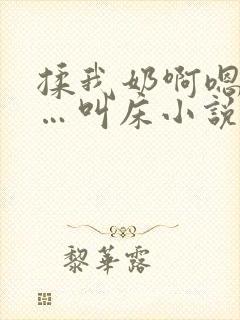 揉我奶啊嗯
…叫床小說
黎華露